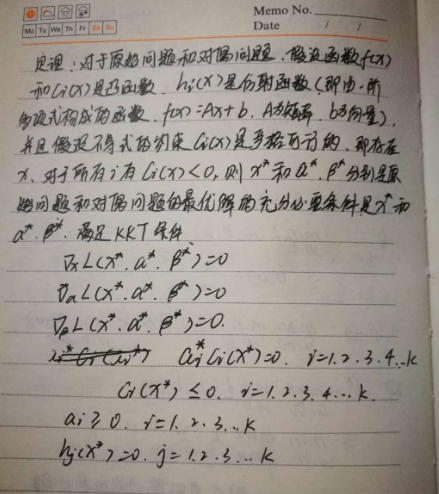 Memo No.
Mo Tu We Th Fr Sa Su
Date / /
定理：对于原始问题和对偶问题，假设函数f(x)
和Ci(x)是凸函数，hi(x)是仿射函数(即由一阶
多项式构成的函数，f(x)=Ax+b，A为矩阵，b为向量)，
并且假设不等式的约束Ci(x)是严格可行的，即存在
x，对于所有i有Ci(x)<0，则x*和α*，β*分别是原
始问题和对偶问题的最优解的充分必要条件是x*和
α*，β*，满足KKT条件
∇xL(x*，α*，β*)=0
∇αL(x*，α*，β*)=0
∇βL(x*，α*，β*)=0.
αi*Ci(x*)=0. i=1.2.3.4..k
Ci(x*)≤0. i=1.2.3.4...k.
αi≥0. i=1.2.3...k
hj(x*)=0. j=1.2.3...k